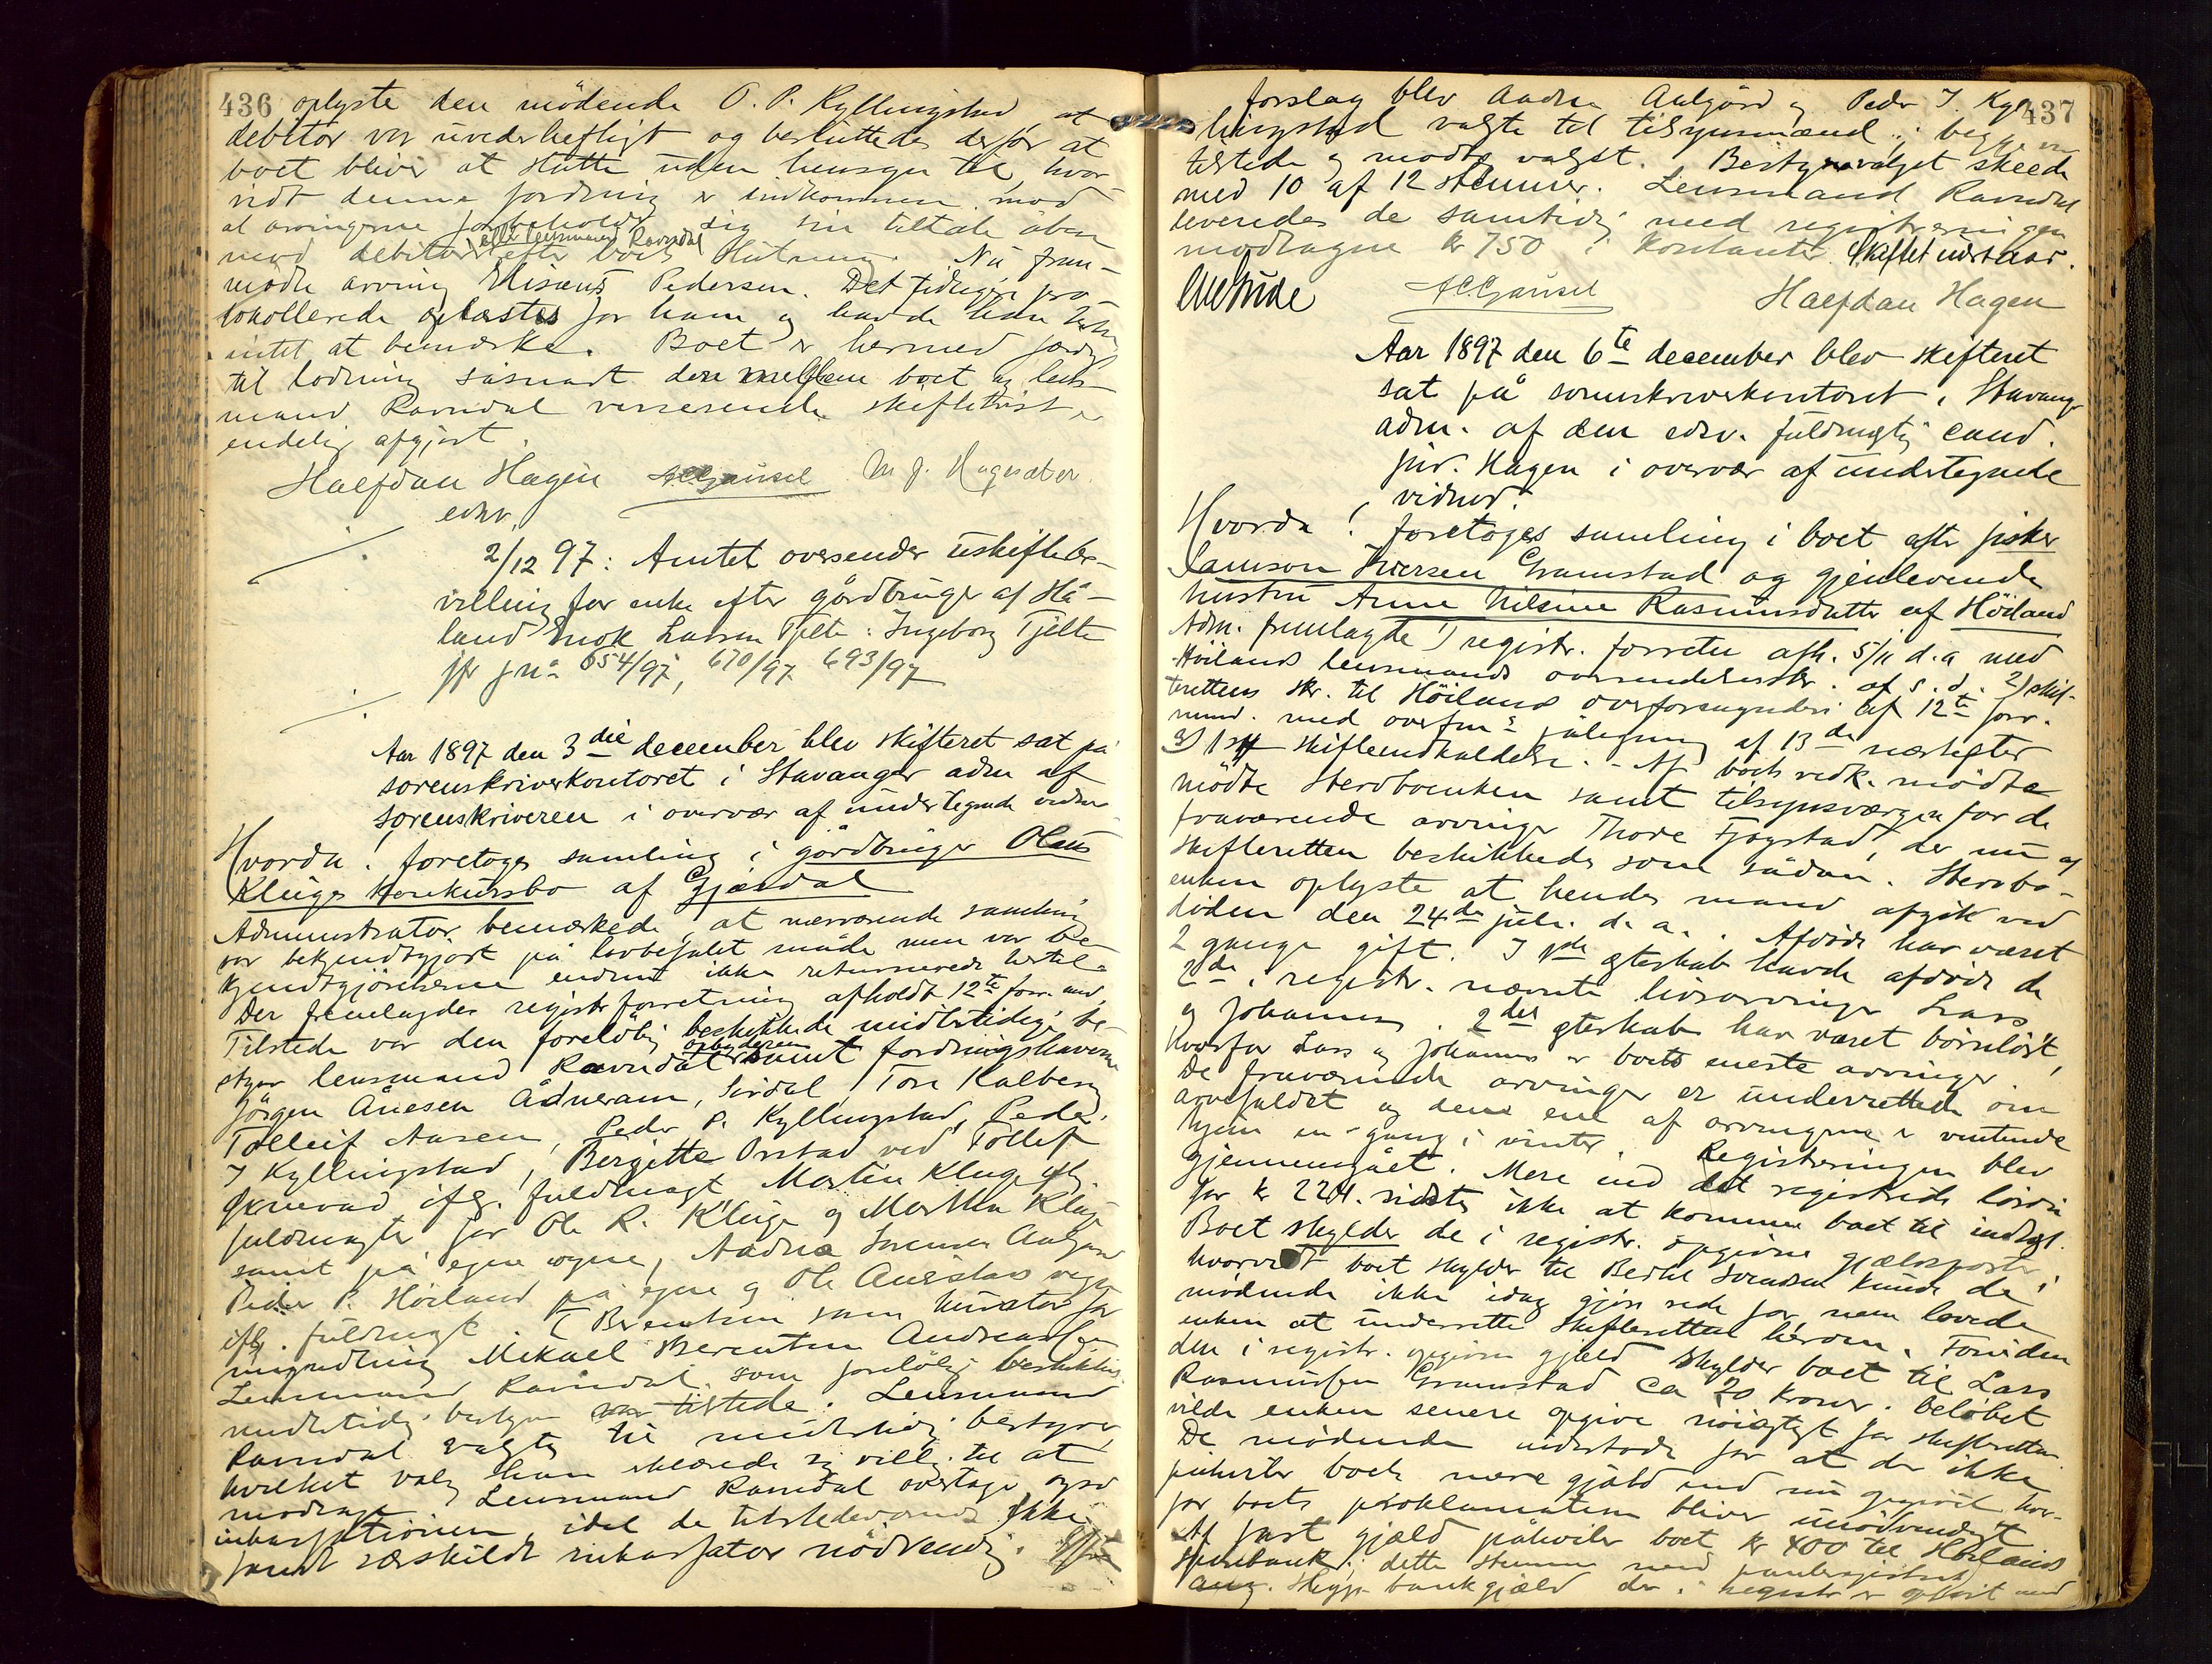 436 oplyste den mödende O. P. Kyllingstad at
debitor var uvederheftigt og besluttedes derfor at
boet bliver at slutte uden hensyn til, hvor-
vidt denne fordring er indkommen, mod
at arvingerne forbeholder sig sin tiltale åben
mod debitor eller lensmand Ravndal efter boets slutning. Nu frem-
mödte arving Elisæus Pedersen. Det tidligere pro-
tokollerede oplæstes for ham og havde han
intet at bemærke. Boet er hermed færdig
til lodning såsnart den mellem boet og lens-
mand Ravndal verserende skiftetvist er
endelig afgjort.
Halfdan Hagen A.C. Gausel M. J. Hagesæter.
edsv.
2/12 97: Amtet oversender uskiftebe-
villing for enke efter gårdbruger af Hå-
land Enok Larsen Tjelte: Ingeborg Tjelte
jfr jn: 654/97, 670/97 693/97
Aar 1897 den 3die december blev skifteret sat på
sorenskriverkontoret i Stavanger adm af
sorenskriveren i overvær af undertegnede vidner
Hvorda! foretoges samling i gårdbruger Olaus
Kluges konkursbo af Gjæsdal
Administrator bemærkede, at nærværende samling
var bekjendtgjort på lovbefalet måde men var be-
kjendtgjörelserne endnu ikke returnerede hertil.
Der fremlagdes registrforretning afholdt 12te forr. md.
Tilstede var den foreløbig beskikkede midlertidige be-
styrer lensmand Ravndal samt fordringshaverne
Jörgen Ånesen Ådneram, Sirdal, Tore Kalberg
Tolleif Aasen, Peder P. Kyllingstad, Peder
I Kyllingstad, Bergitte Orstad ved Tollef
ifg. fuldmagt Morten Kluge ifg.
fuldmagter for Ole R. Kluge og Marthe Kluge
samt på egne vegne, Aadne Sörensen Aalgård
Peder P. Höiland på egne og Ole vegne
ifg. fuldmagt Berentsen som kurator for
myndling Mikael Berentsen Andreassen
Lensmand Ravndal som foreløbig beskikket
midlertidig bestyrer var tilstede. Lensmand
Ravndal valgtes til midlertidig bestyrer,
hvilket valg han erklærede sig villig til at
modtage. Lensmand Ravndal overtager også
inkassationen, idet de tilstedeværende ikke
fandt særskildt inkassator nödvendig.
forslag blev Aadne Aalgård og Peder I. Kyl- 437
lingstad valgte til tilsynsmænd; begge var
tilstede og modtog valget. Bestyrervalget skeede
med 10 af 12 stemmer. Lensmand Ravndal
leverede de samtidig med registreringen
modtagne kr 750 i kontanter. Skiftet udsattes.
A.C. Gausel Halfdan Hagen
Aar 1897 den 6te december blev skifteret
sat på sorenskriverkontoret i Stavanger
adm. af den edsv. fuldmægtig cand.
jur. Hagen i overvær af undertegnede
vidner.
Hvorda! foretoges samling i boet efter fisker
Samson Iversen Gramstad og gjenlevende
hustru Anne Nilsine Rasmusdatter af Höiland
Adm. fremlagte 1) registr. forretn afh. 5/11 d.a med
Höilands lensmands oversendelsesskr. af s.d. 2) skif-
terettens skr. til Höilands overformynderi af 12te forr.
mnd. med overfm's påtegning af 13de næstefter
3) 1 stk skifteindkaldelse. - Af boets vedk. mödte
mödte sterbboenken samt tilsynsværgen for de
fraværende arvinger Thore Fjogstad, der nu af
skifteretten beskikkedes som sådan. Sterbbo-
enken oplyste at hendes mand afgik ved
döden den 24de juli d. a.. Afdöde har været
2 gange gift. I 1ste egteskab havde afdöde de
2de i registr. nævnte livsarvinger Lars
og Johannes. 2det egteskab har været börnlöst,
hvorfor Lars og Johannes er boets eneste arvinger.
De fraværende arvinger er underrettede om
arvefaldet og den ene af arvingerne er ventende
hjem en gang i vinter. Registreringen blev
gjennemgået. Mere end det registrerede lösöre
for kr 224. vidstes ikke at komme boet til indtægt.
Boet skylder de i registr. opgivne gjældsposter;
hvorvidt boet skylder til Berthe Svendsen kunde de
mödende ikke idag gjöre rede for men lovede
enken at underrette skifteretten herom. Foruden
den i registr. opgivne gjæld skylder boet til Lars
Rasmussen Gramstad ca 20 kroner. Belöbet
vilde enken senere opgive nöiagtigt for skifteretten.
De mödende indestode for at der ikke
påhviler boet mere gjæld end nu opgivet hvor-
for boets proklamation bliver unödvendigt
Af fast gjæld påhviler boet kr 400 til Höilands
sparebank; dette stemmer med panteregistret
ang. bankgjæld der i registr er opfört med